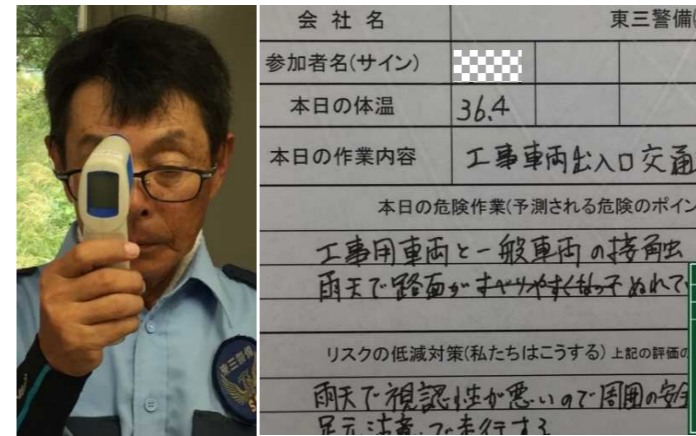 東三警備
会社名 東三警備
参加者名(サイン)
本日の体温 36.4
本日の作業内容 工事車両出入口交通
本日の危険作業(予測される危険のポイン
工事用車両と一般車両の接触
雨天で路面がすべりやすくなって ぬれて
リスクの低減対策(私たちはこうする) 上記の評価の
雨天で視認性が悪いので周囲の安全
足元注意で走行する